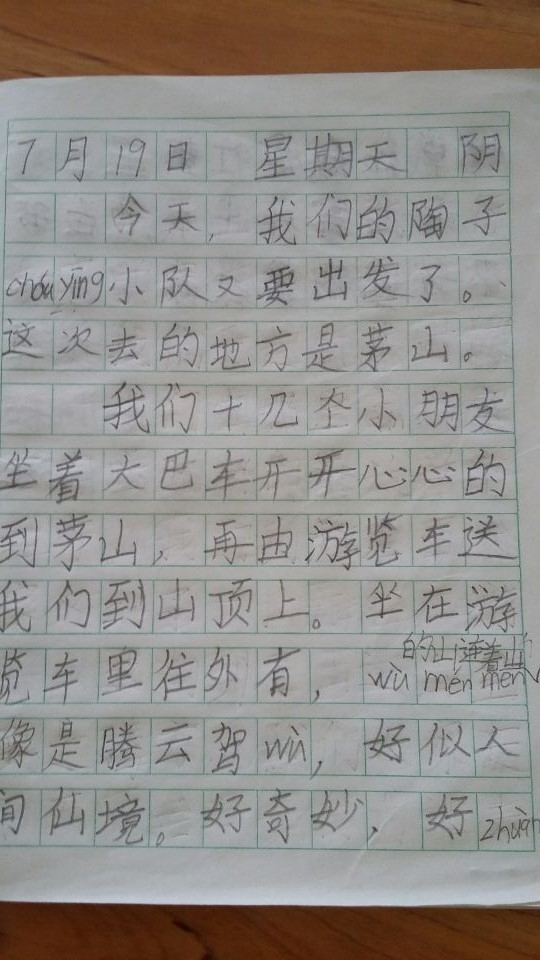 7月19日 星期天 阴
今天，我们的陶子
chóu yīng小队又要出发了。
这次去的地方是茅山。
我们十几个小朋友
坐着大巴车开开心心的
到茅山，再由游览车送
我们到山顶上。坐在游
的山连着山
览车里往外有，wù mén mén
像是腾云驾wù，好似人
间仙境。好奇妙，好